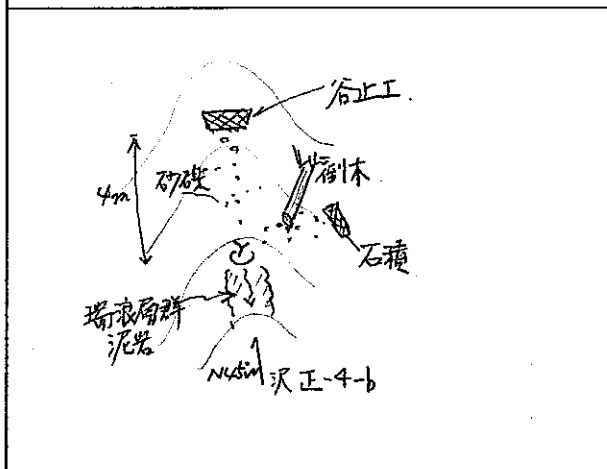 谷止工
4m
砂礫
倒木
石積
瑞浪層群
泥岩
沢正-4-b